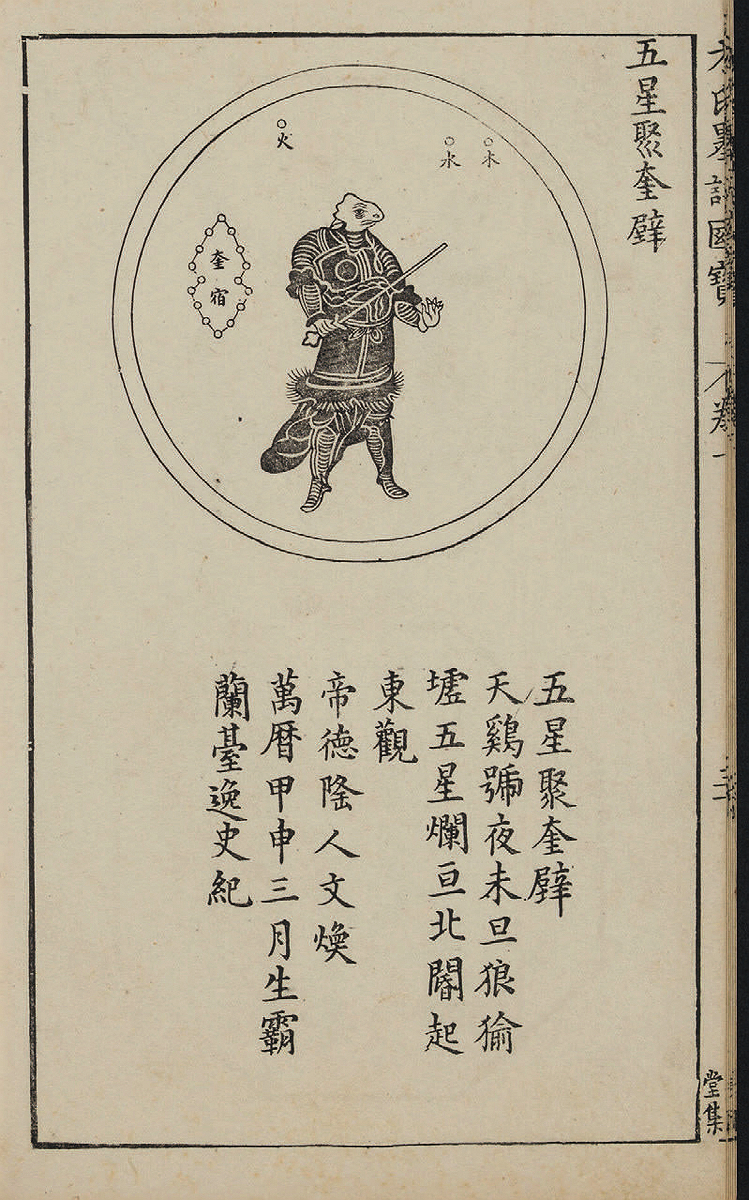 方氏墨譜國寶 卷一
堂集
五星聚奎壁
木
水
火
奎宿
五星聚奎壁
天鷄號夜未旦狼㺄
墟五星爛亘北閽起
東觀
帝德隆人文煥
萬曆甲申三月生霸
蘭臺逸史紀